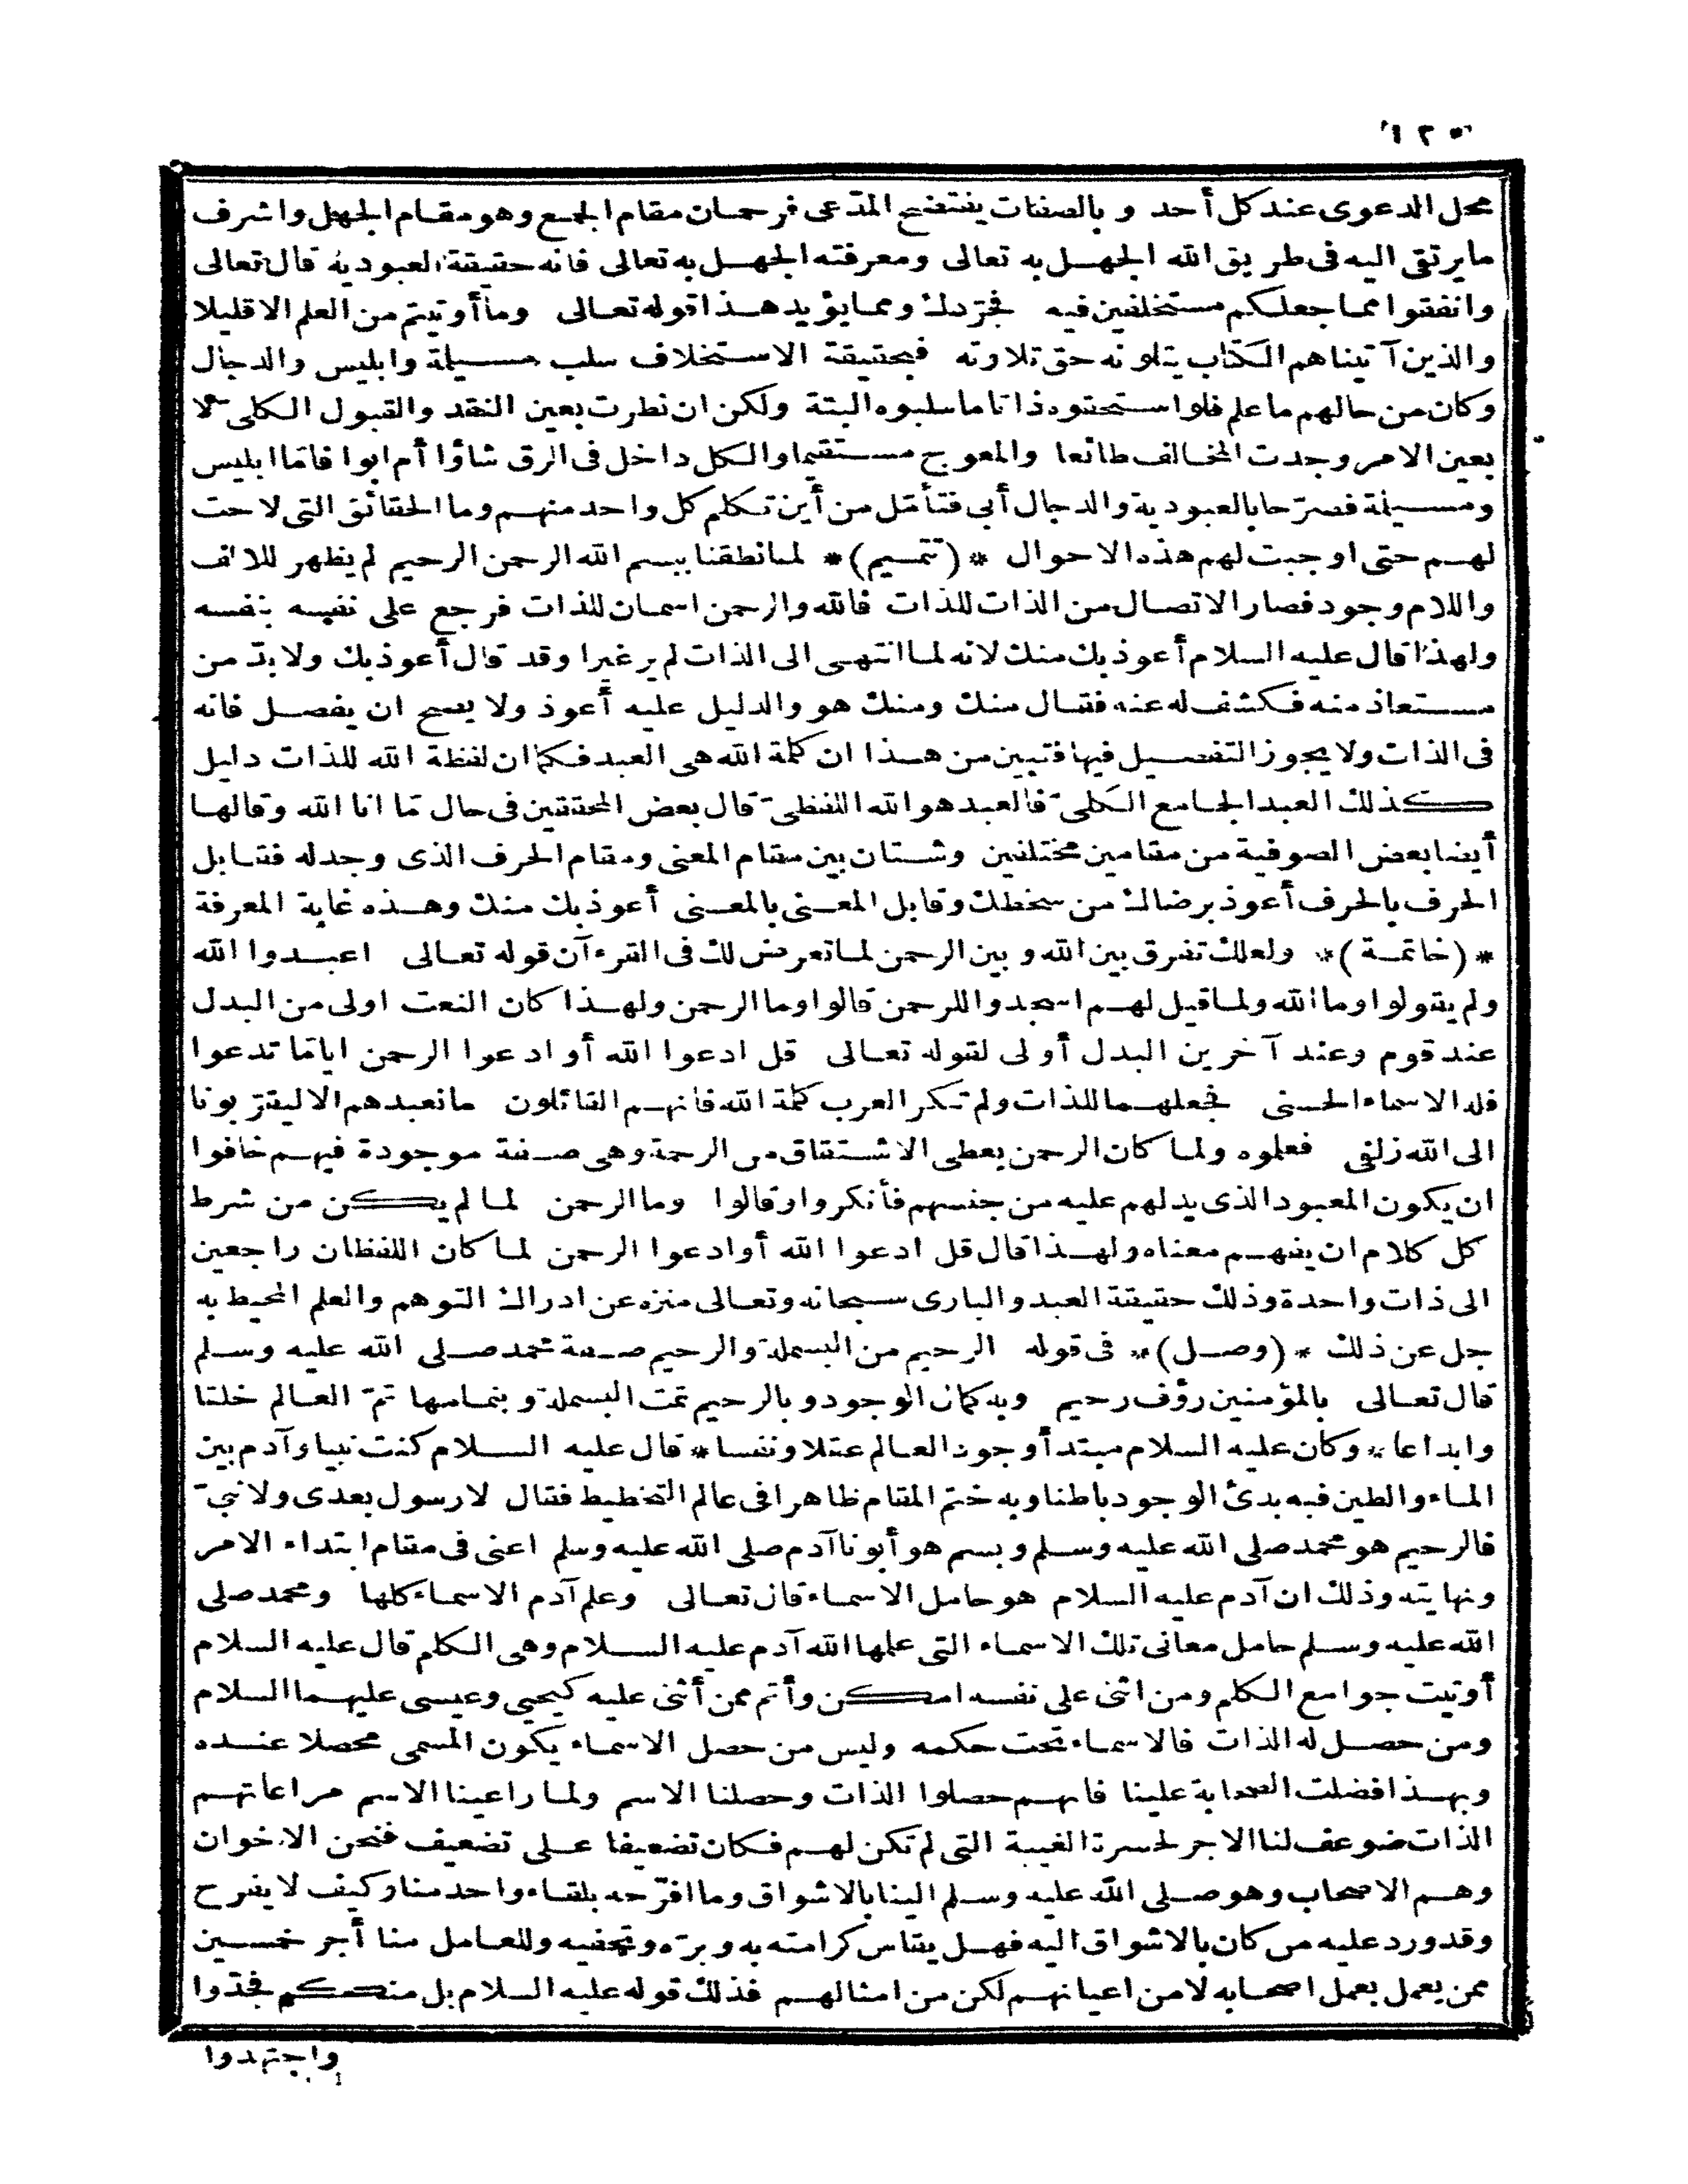 ١٢٥
محل الدعوى عند كل أحد وبالصفات يفتضح المدّعى فرحمان مقام الجمع وهو مقام الجهل واشرف
ما يرتقى اليه فى طريق الله الجهل به تعالى ومعرفته الجهل به تعالى فانه حقيقة العبودية قال تعالى
وانفقوا مما جعلكم مستخلفين فيه فجرّدك ومما يؤيد هذا قوله تعالى وما أوتيتم من العلم الا قليلا
والذين آتيناهم الكتاب يتلونه حق تلاوته فبحقيقة الاستخلاف سلب مسيلمة وابليس والدجال
وكان من حالهم ما علم فلو استحقوه ذاتا ما سلبوه البتة ولكن ان نظرت بعين النقد والقبول الكلىّ لا
بعين الامر وجدت المخالف طائعا والمعوج مستقيما والكل داخل فى الرق شاؤا أم ابوا فامّا ابليس
ومسيلمة فصرّحا بالعبودية والدجال أبى فتأمّل من أين تكلم كل واحد منهم وما الحقائق التى لاحت
لهم حتى اوجبت لهم هذه الاحوال * (تتميم) * لما نطقنا ببسم الله الرحمن الرحيم لم يظهر للالف
واللام وجود فصار الاتصال من الذات للذات فالله والرحمن اسمان للذات فرجع على نفسه بنفسه
ولهذا قال عليه السلام أعوذ بك منك لانه لما انتهى الى الذات لم ير غيرا وقد قال أعوذ بك ولا بدّ من
مستعاذ منه فكشف له عنه فقال منك ومنك هو والدليل عليه أعوذ ولا يصح ان يفصل فانه
فى الذات ولا يجوز التفصيل فيها فتبين من هذا ان كلمة الله هى العبد فكما ان لفظة الله للذات دليل
كذلك العبد الجامع الكلىّ فالعبد هو الله اللفظىّ قال بعض المحققين فى حال مّا انا الله وقالها
أيضا بعض الصوفية من مقامين مختلفين وشتان بين مقام المعنى ومقام الحرف الذى وجد له فقابل
الحرف بالحرف أعوذ برضاك من سخطك وقابل المعنى بالمعنى أعوذ بك منك وهذه غاية المعرفة
* (خاتمة) * ولعلك تفرق بين الله وبين الرحمن لما تعرض لك فى القرءآن قوله تعالى اعبدوا الله
ولم يقولوا وما الله ولما قيل لهم اسجدوا للرحمن قالوا وما الرحمن ولهذا كان النعت اولى من البدل
عند قوم وعند آخرين البدل أولى لقوله تعالى قل ادعوا الله أو ادعوا الرحمن ايامّا تدعوا
فله الاسماء الحسنى فجعلهما للذات ولم تنكر العرب كلمة الله فانهم القائلون ما نعبدهم الا ليقرّبونا
الى الله زلفى فعلموه ولما كان الرحمن يعطى الاشتقاق من الرحمة وهى صفة موجودة فيهم خافوا
ان يكون المعبود الذى يدلهم عليه من جنسهم فأنكروا وقالوا وما الرحمن لما لم يكن من شرط
كل كلام ان يفهم معناه ولهذا قال قل ادعوا الله أو ادعوا الرحمن لما كان اللفظان راجعين
الى ذات واحدة وذلك حقيقة العبد والبارى سبحانه وتعالى منزه عن ادراك التوهم والعلم المحيط به
جل عن ذلك * (وصل) * فى قوله الرحيم من البسملة والرحيم صفة محمد صلى الله عليه وسلم
قال تعالى بالمؤمنين رؤف رحيم وبه كمال الوجود وبالرحيم تمت البسملة وبتمامها تمّ العالم خلقا
وابداعا * وكان عليه السلام مبتدأ وجود العالم عقلا ونفسا * قال عليه السلام كنت نبيا وآدم بين
الماء والطين فبه بدئ الوجود باطنا وبه ختم المقام ظاهرا فى عالم التخطيط فقال لا رسول بعدى ولا نبىّ
فالرحيم هو محمد صلى الله عليه وسلم وبسم هو أبونا آدم صلى الله عليه وسلم اعنى فى مقام ابتداء الامر
ونهايته وذلك ان آدم عليه السلام هو حامل الاسماء قال تعالى وعلم آدم الاسماء كلها ومحمد صلى
الله عليه وسلم حامل معانى تلك الاسماء التى علمها الله آدم عليه السلام وهى الكلم قال عليه السلام
أوتيت جوامع الكلم ومن اثنى على نفسه امكن وأتم ممن أثنى عليه كيحيى وعيسى عليهما السلام
ومن حصل له الذات فالاسماء تحت حكمه وليس من حصل الاسماء يكون المسمى محصلا عنده
وبهذا فضلت الصحابة علينا فانهم حصلوا الذات وحصلنا الاسم ولما راعينا الاسم مراعاتهم
الذات ضوعف لنا الاجر لحسرة الغيبة التى لم تكن لهم فكان تضعيفا على تضعيف فنحن الاخوان
وهم الاصحاب وهو صلى الله عليه وسلم الينا بالاشواق وما افرّحه بلقاء واحد منا وكيف لا يفرح
وقد ورد عليه من كان بالاشواق اليه فهل يقاس كرامته به وبرّه وتحفيه وللعامل منا أجر خمسين
ممن يعمل بعمل اصحابه لا من اعيانهم لكن من امثالهم فذلك قوله عليه السلام بل منكم فجدّوا
واجتهدوا